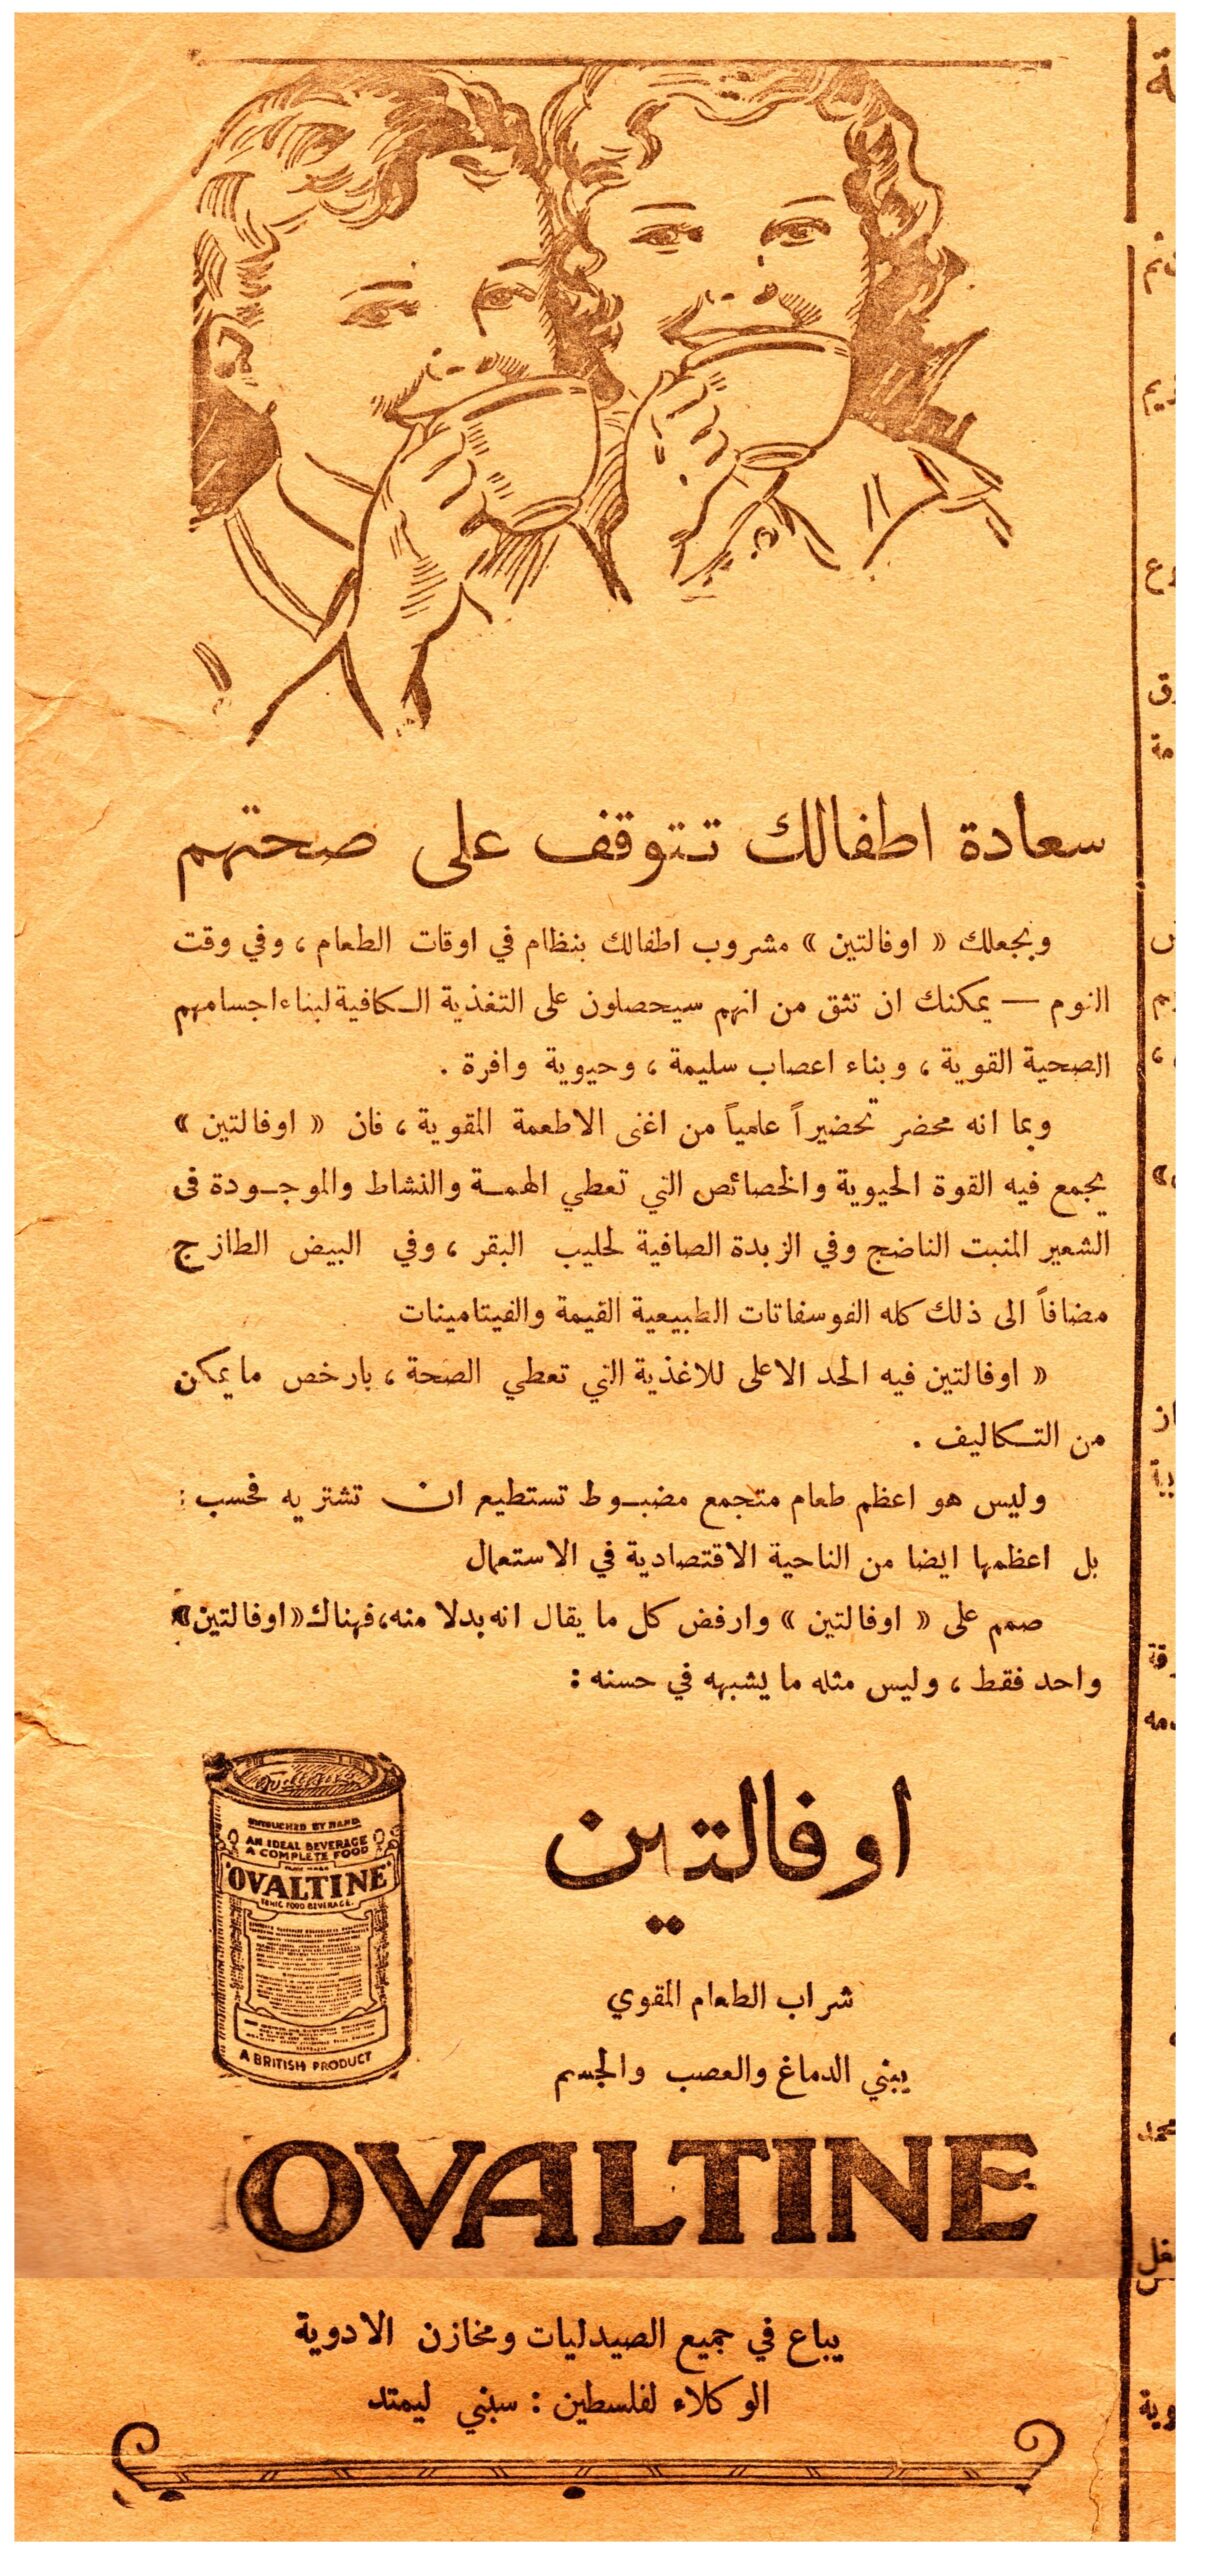 سعادة اطفالك تتوقف على صحتهم
وبجعلك « اوفالتين » مشروب اطفالك بنظام في اوقات الطعام ، وفي وقت
النوم — يمكنك ان تثق من انهم سيحصلون على التغذية الكافية لبناء اجسامهم
الصحية القوية ، وبناء اعصاب سليمة ، وحيوية وافرة .
وبما انه محضر تحضيراً علمياً من اغنى الاطعمة المقوية ، فان « اوفالتين »
يجمع فيه القوة الحيوية والخصائص التي تعطي الهمة والنشاط والموجودة في
الشعير المنبت الناضج وفي الزبدة الصافية لحليب البقر ، وفي البيض الطازج
مضافاً الى ذلك كله الفوسفاتات الطبيعية القيمة والفيتامينات
« اوفالتين فيه الحد الاعلى للاغذية التي تعطي الصحة ، بارخص ما يمكن
من التكاليف .
وليس هو اعظم طعام متجمع مضبوط تستطيع ان تشتريه فحسب :
بل اعظمها ايضا من الناحية الاقتصادية في الاستعمال
صمم على « اوفالتين » وارفض كل ما يقال انه بدلا منه، فهناك «اوفالتين»
واحد فقط ، وليس مثله ما يشبهه في حسنه :
UNTOUCHED BY HAND
AN IDEAL BEVERAGE
A COMPLETE FOOD
'OVALTINE'
TONIC FOOD BEVERAGE
A BRITISH PRODUCT
اوفالتين
شراب الطعام المقوي
يبني الدماغ والعصب والجسم
OVALTINE
يباع في جميع الصيدليات ومخازن الادوية
الوكلاء لفلسطين : سبني ليمتد